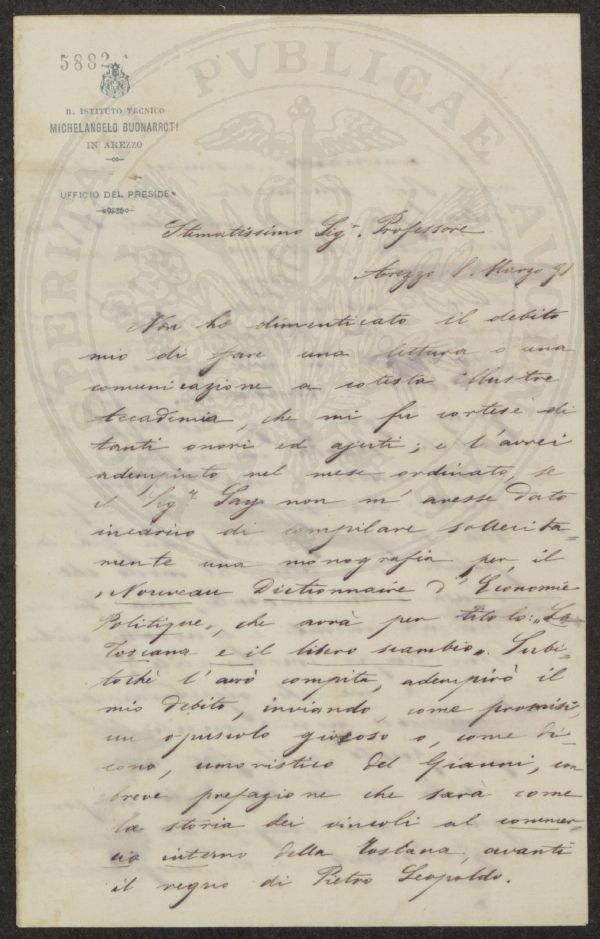 5882
R. ISTITUTO TECNICO
MICHELANGELO BUONARROTI
IN AREZZO
UFFICIO DEL PRESIDE
PVBLICAE
Stimatissimo Sigr. Professore
Arezzo 8. Marzo 91
Non ho dimenticato il debito
mio di fare una lettura o una
comunicazione a cotesta illustre
Accademia, che mi fu cortese di
tanti onori ed ajuti; e l'avrei
adempiuto nel mese ordinato, se
il Sigr. Say non m'avesse dato
incarico di compilare sollecita=
mente una monografia per il
"Nouveau Dictionnaire d'Economie
Politique", che avrà per titolo: "La
Toscana e il libero scambio". Subi=
tochè l'avrò compita, adempirò il
mio debito, inviando, come promisi,
un opuscolo giocoso o, come di=
cono, umoristico del Gianni, con
breve prefazione che sarà come
la storia dei vincoli al commer=
cio interno della Toscana, avanti
il regno di Pietro Leopoldo.